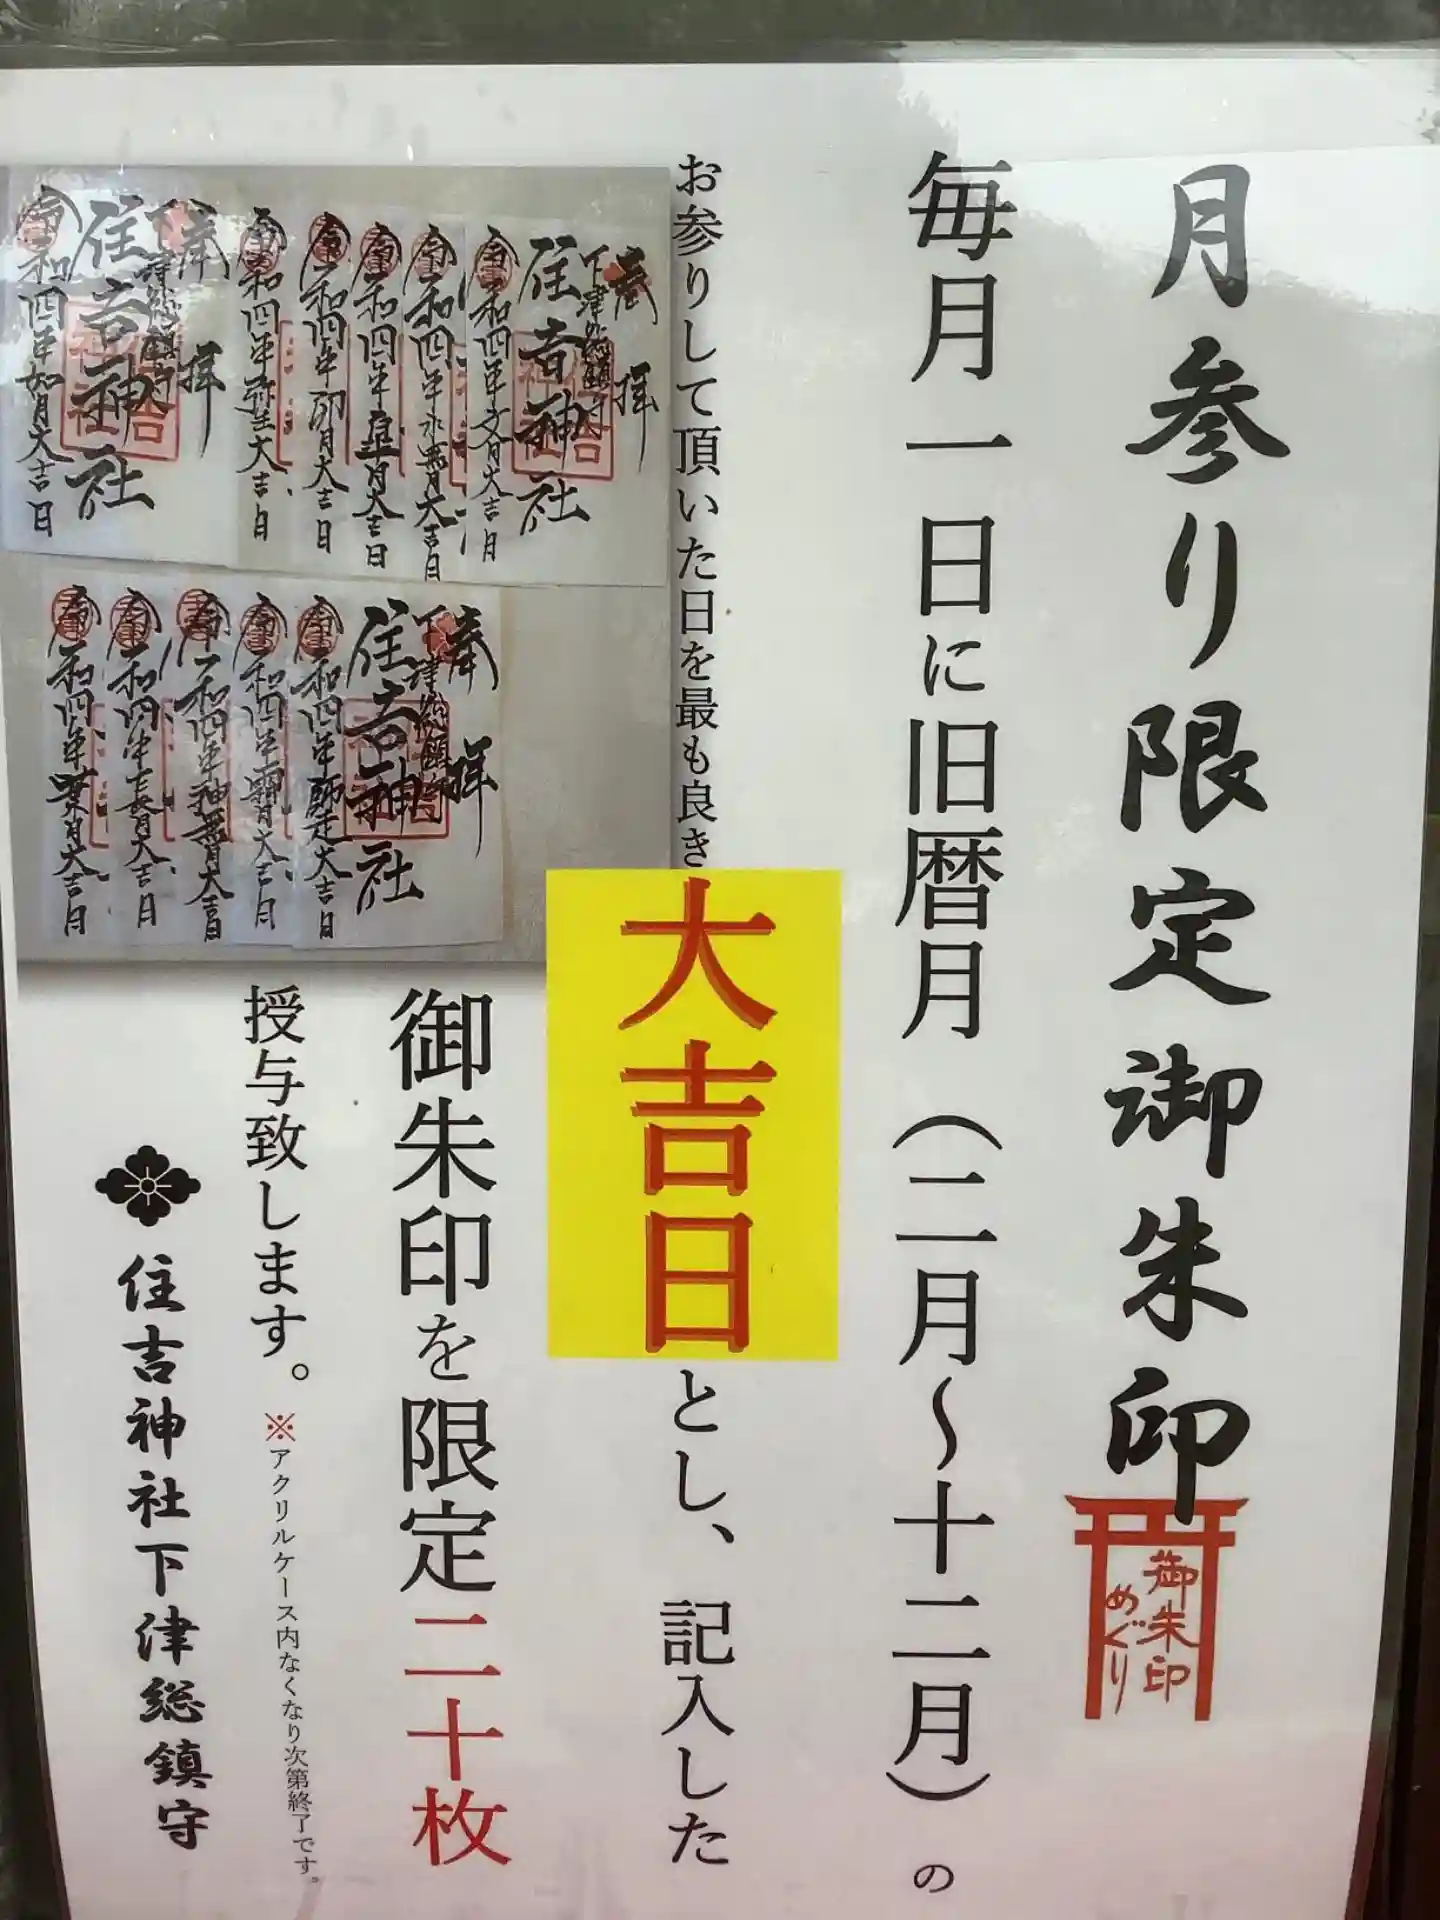 月参り限定御朱印
御朱印
めぐり
毎月一日に旧暦月（二月〜十二月）の
お参りして頂いた日を最も良き大吉日とし、記入した
御朱印を限定二十枚
授与致します。※アクリルケース内なくなり次第終了です。
住吉神社下津総鎮守
奉拝
下津総鎮守
住吉神社
令和四年文月大吉日
令和四年水無月大吉日
令和四年皐月大吉日
令和四年卯月大吉日
令和四年弥生大吉日
奉拝
下津総鎮守
住吉神社
令和四年如月大吉日
奉拝
下津総鎮守
住吉神社
令和四年師走大吉日
令和四年霜月大吉日
令和四年神無月大吉日
令和四年長月大吉日
令和四年葉月大吉日